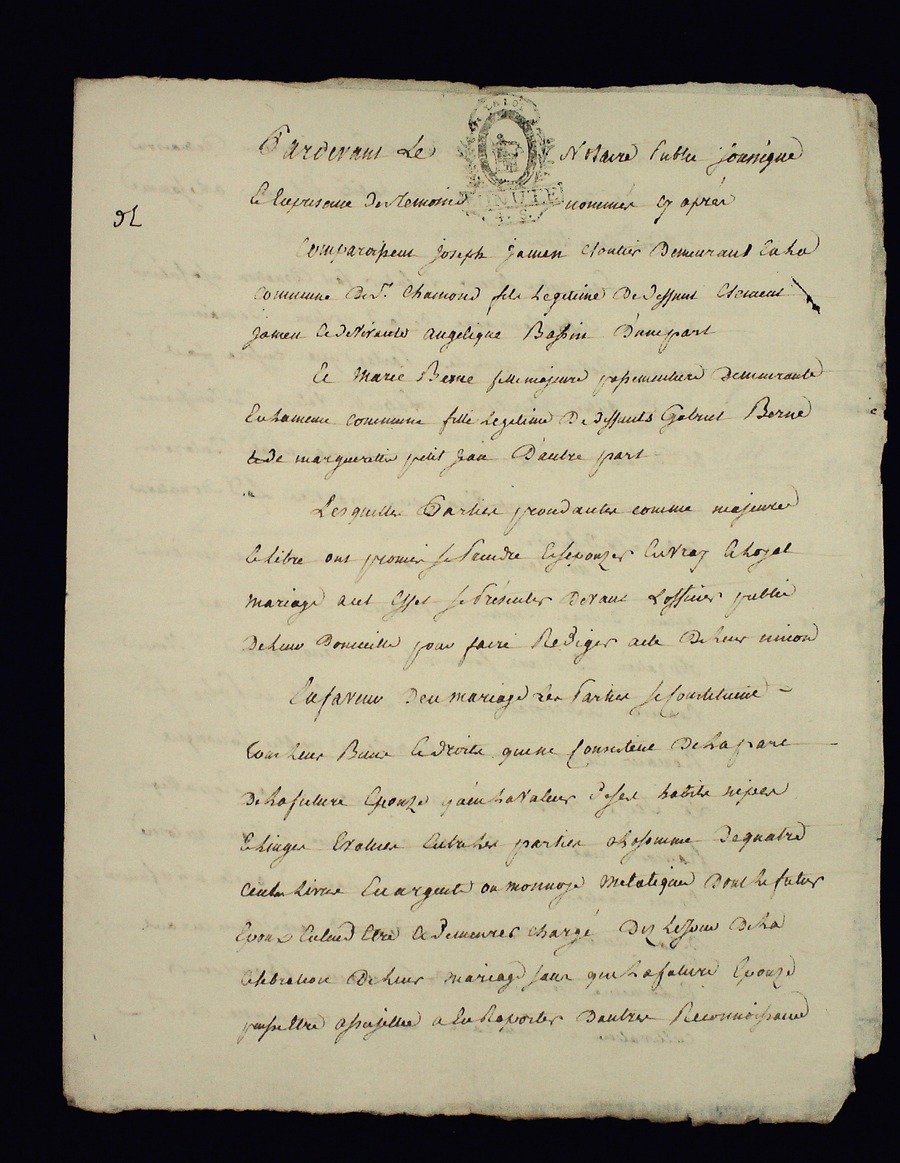 Pardevant Le Notaire Public soussigné
LA LOI
MINUTE
4. S.
Et En presence des temoins nommés cy après
Comparoissent joseph jamen cloutier Demeurant En La
Commune De St. Chamond fils Legitime De deffunt Clement
jamen Et de vivante angelique Bassin D'une part
Et Marie Berne fille majeure passementiere Demeurante
En La meme commune fille Legitime De deffunts Gabriel Berne
Et de margueritte petit jean D'autre part
Lesquelles Parties procedantes comme majeures
Et libre ont promis se Prendre Et sepouzer En vray Et Loyal
Mariage a cet effet se Présenter Devant L'officier public
De Leur Domicille pour faire Rediger acte De Leur union
En faveur De ce mariage Les Parties se Constituent
Tous Leurs Biens Et droits qui ne Consistent De La part
De La future Epouze qu'en La valeur de ses habits nipes
Et Linges Evalués Entre Les parties a La somme De quatre
Cents Livres En argent ou monnoye Metalique Dont Le futur
Epoux Entend Etre Et demeurer chargé Dez Le jour De La
Celebration De Leur mariage sans que La future Epouze
puisse Etre assujettie a En Raporter D'autre Reconnoissance